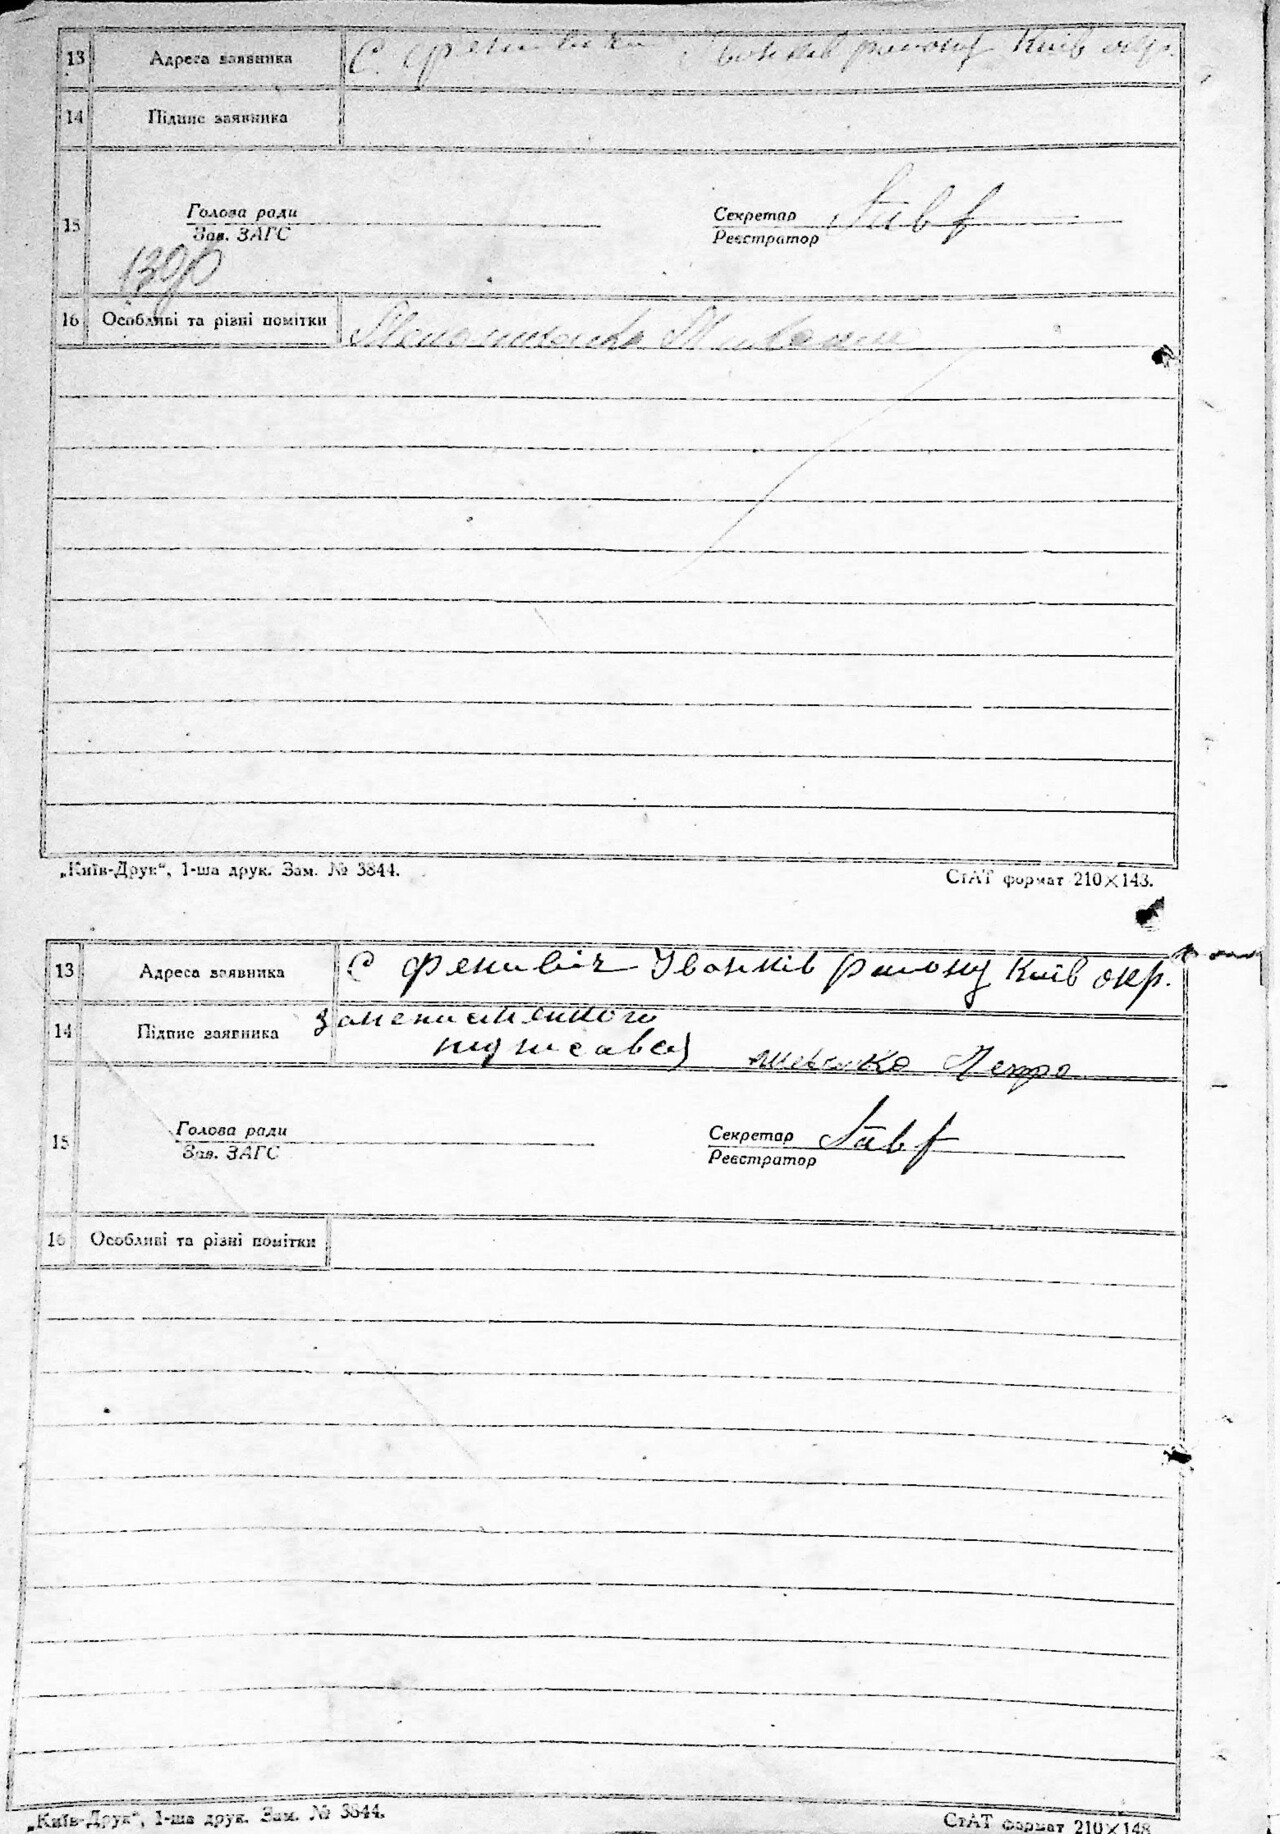 13 Адреса заявника С Феневичи Іванків району Київ окр.
14 Підпис заявника
15 Голова ради Секретар
Зав. ЗАГС Реєстратор
16 Особливі та різні помітки
„Київ-Друк“, 1-ша друк. Зам. № 3844. СтАТ формат 210×148.
13 Адреса заявника С Феневіч Іванків району Київ окр.
14 Підпис заявника
підписався Петро
15 Голова ради Секретар
Зав. ЗАГС Реєстратор
16 Особливі та різні помітки
„Київ-Друк“, 1-ша друк. Зам. № 3844. СтАТ формат 210×148